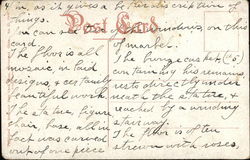 it in, as it gives a better description of
things.
Post Card
You can see the surroundings, on this
card.
The floor is all
mosaic, in laid
designs, & certainly
beautiful work.
The statue, figure
chair, base, and in
back was carved
out of one piece
of marble.
The bronze casket, (6)
containing his remains
rests directly under
neath the statue, &
reached by a winding
stairway.
The floor is often
strewn with roses.